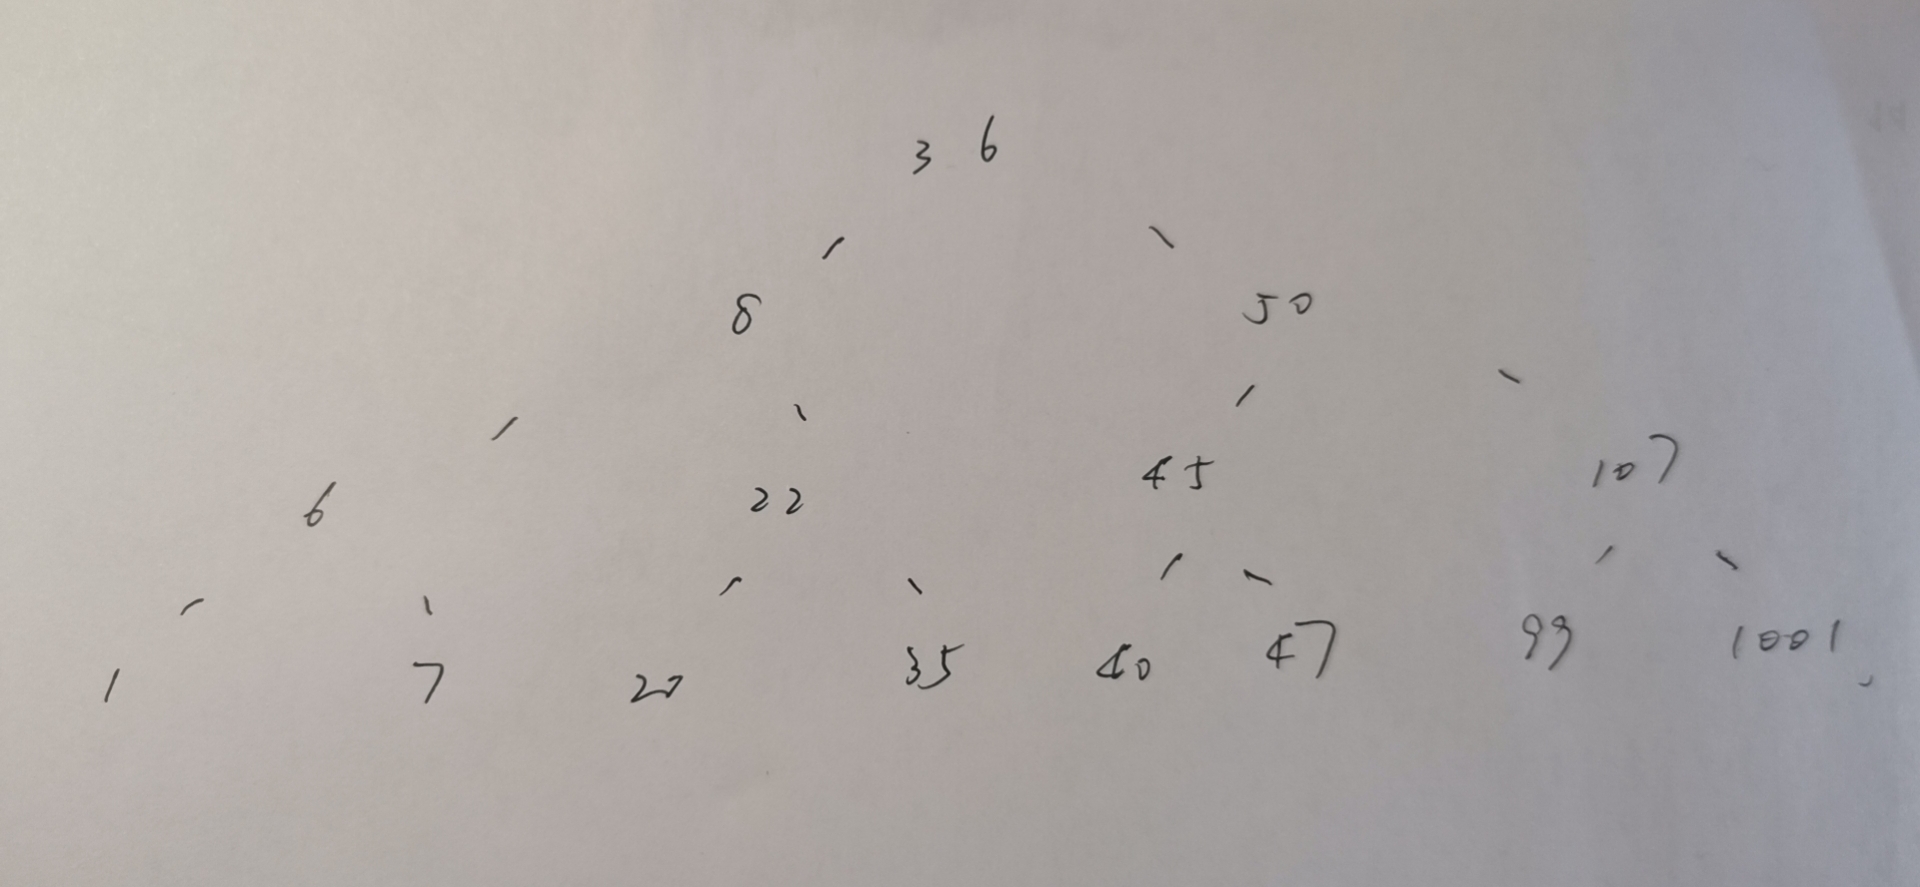 36
8 50
6 22 45 107
1 7 20 35 40 47 99 1001